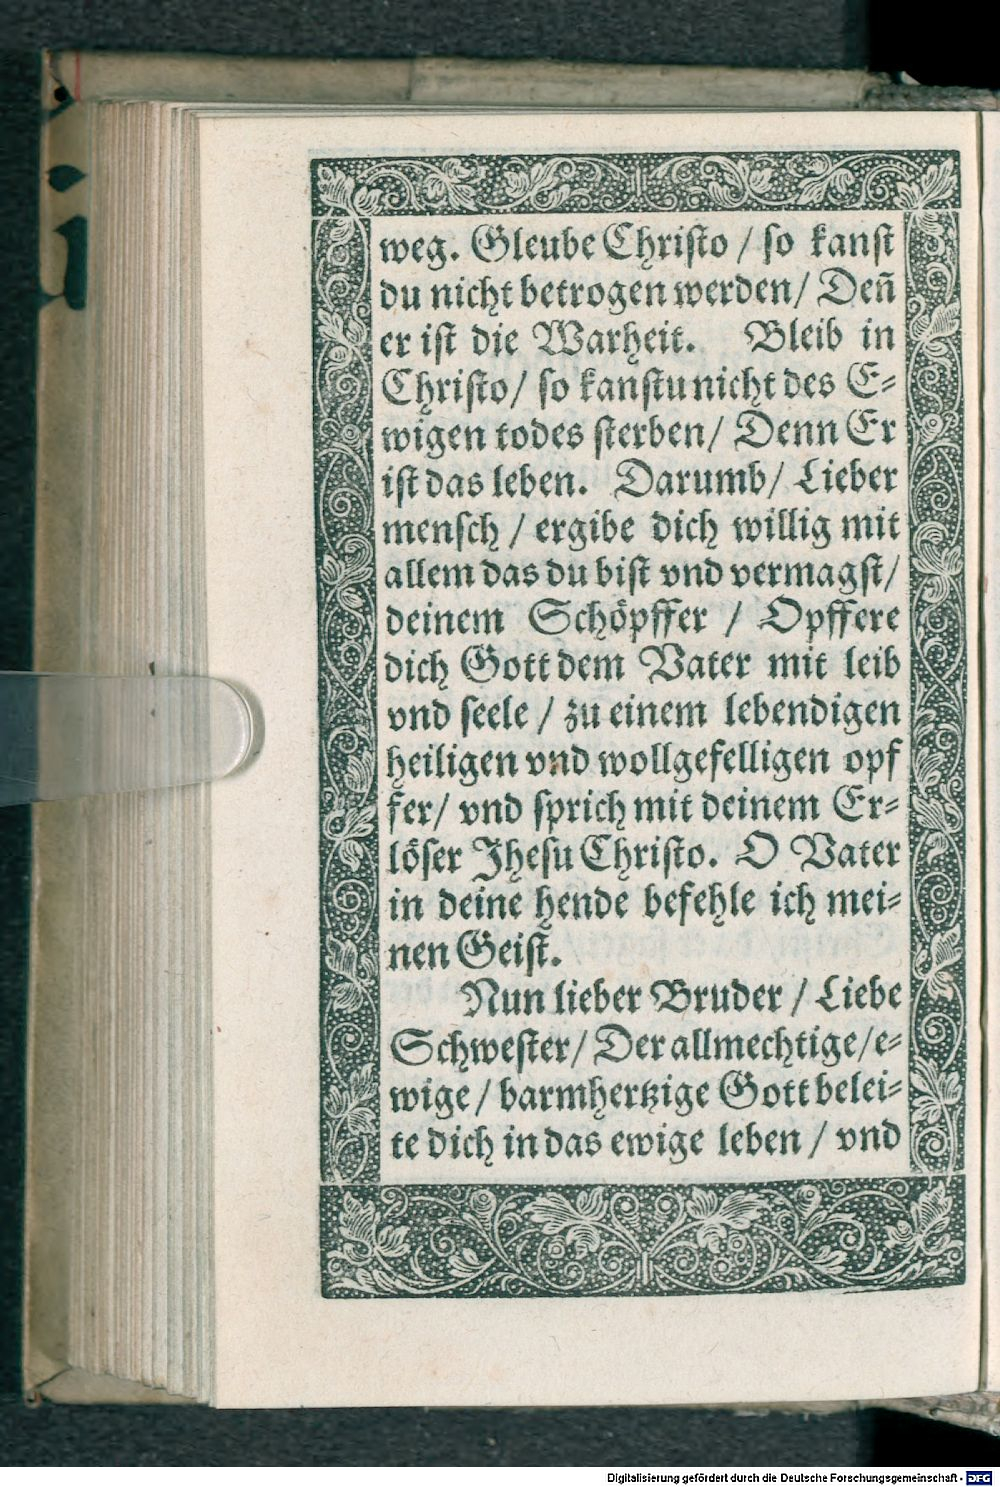 weg. Gleube Christo / so kanst
du nicht betrogen werden / Deñ
er ist die Warheit. Bleib in
Christo / so kanstu nicht des E⸗
wigen todes sterben / Denn Er
ist das leben. Darumb / Lieber
mensch / ergibe dich willig mit
allem das du bist vnd vermagst /
deinem Schöpffer / Opffere
dich Gott dem Vater mit leib
vnd seele / zu einem lebendigen
heiligen vnd wollgefelligen opf
fer / vnd sprich mit deinem Er⸗
löser Jhesu Christo. O Vater
in deine hende befehle ich mei⸗
nen Geist.
Nun lieber Bruder / Liebe
Schwester / Der allmechtige / e⸗
wige / barmhertzige Gott belei⸗
te dich in das ewige leben / vnd
Digitalisierung gefördert durch die Deutsche Forschungsgemeinschaft - DFG